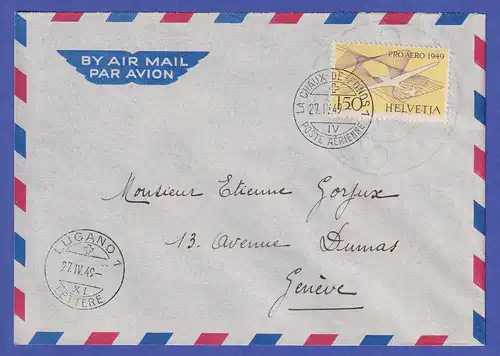 BY AIR MAIL
PAR AVION
PRO AERO 1949
150
HELVETIA
LA CHAUX-DE-FONDS 1
27.IV.49
IV
POSTE AÉRIENNE
Monsieur Etienne Gorjux
13. Avenue Dumas
Genève
LUGANO 1
27.IV.49-
XI
LETTERE